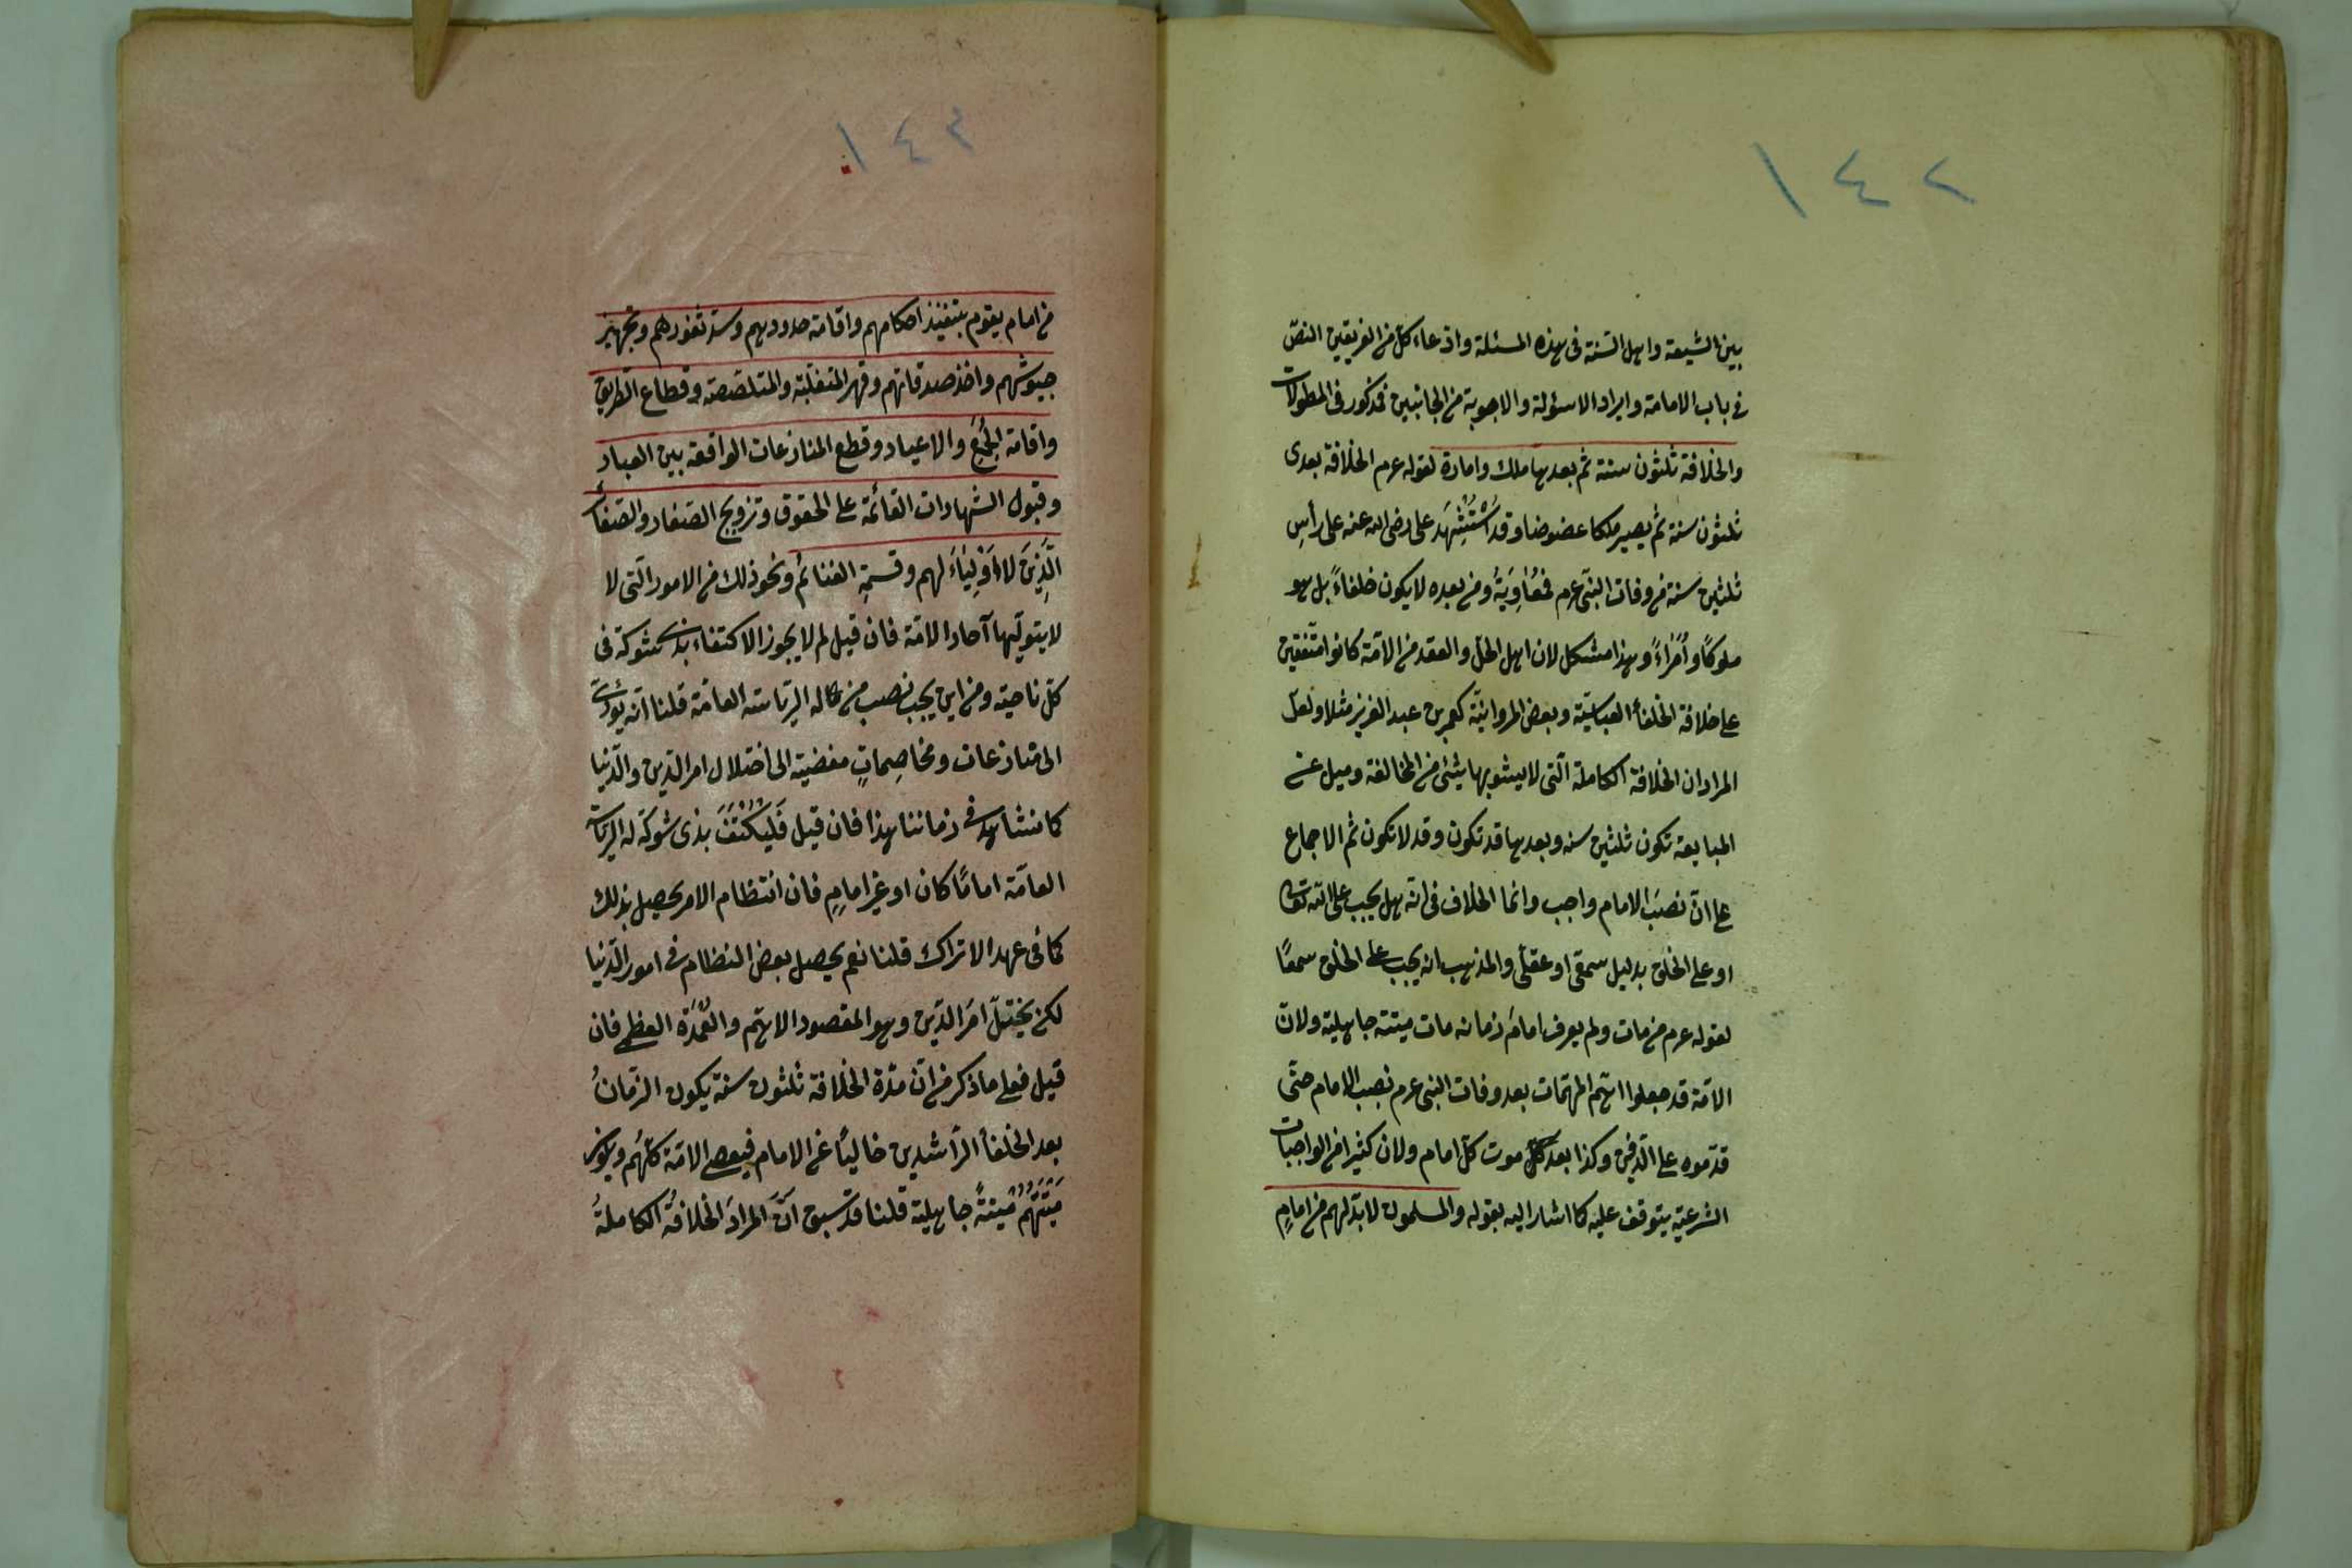 ١٤٢
بين الشيعة واهل السّنة فى هذه المسئلة وادعاء كلّ من الفريقين النصّ
فى باب الامامة وايراد الاسئولة والاجوبة من الجانبين فمذكور فى المطولات
والخلافة ثلثون سنة ثم بعدها ملك وامارة لقوله عرم الخلافة بعدى
ثلثون سنة ثم يصير ملكا عضوضا وقد اُسْتُشْهِدَ على رضى الله عنه على رأسِ
ثلثين سنة من وفات النبّى عرم فمُعٰاوِيَةُ ومن بعده لا يكون خلفاءً بل هو
ملوكًا وأمَراءً وهذا مشكل لان اهل الحلّ والعقد من الامّة كانوا متّفقين
على خلافة الخلفأ العباسيّة وبعض المروانيّة كعمر بن عبد العزيز مثلا ولعلّ
المراد ان الخلافة الكاملة الّتى لا يشوبها شئ من المخالفة وميل عن
المبايعة تكون ثلثين سنه وبعدها قد تكون وقد لا تكون ثم الاجماع
على انّ نصبَ الامام واجب وانما الخلاف فى انّه هل يجب على اللّه تعالى
او على الخلق بدليل سمعّى او عقلّى والمذهب انه يجب على الخلق سمعًا
لقوله عرم من مات ولم يعرف امامَ زمانه مات ميتة جاهلية ولانّ
الامّة قد جعلوا اهمّ المهمّات بعد وفات النبى عرم نصب الامام حتّى
قدّموه على الدّفن وكذا بعد كلّ موت كلّ امام ولان كثيرا من الواجبات
الشرعيّة يتوقف عليه كما اشار اليه بقوله والمسلمون لا بدّ لهم من امامٍ
١٤٣
من امام يقوم بتنفيذ احكامهم واقامة حدودهم وسدّ ثغورهم وتجهيز
جيوشهم واخذ صدقاتهم وقهر المتغلّبة والمتلصّصة وقطاع الطّريق
واقامة الجُمَعِ والاعياد وقطع المنازعات الواقعة بين العباد
وقبول الشهادات القائمة على الحقوق وتزويج الصّغار والصّغائر
الَّذِينَ لَا اَوْلِيَاءَ لهم وقسمةِ الغنائم ونحو ذلك من الامور الّتى لا
لا يتولّيها آحاد الامّة فان قيل لم لا يجوز الاكتفاء بذى شوكة فى
كلّ ناحية ومن اين يجب نصب من له الرّياسته العامّة قلنا انّه يؤدّى
الى منازعات ومخاصِماتٍ مفضية الى اختلال امر الدّين والدّنيا
كما نشاهد فى زماننا هذا فان قيل فَليُكْتَفَ بذى شوكة له الرّياسة
العامّة امامًا كان او غير امامٍ فان انتظام الامر يحصل بذلك
كما فى عهد الاتراك قلنا نعم يحصل بعض النظام فى امور الدّنيا
لكن يختلّ امَر الدّين وهو المقصود الاهمّ والعُمْدَة العظمى فان
قيل فعلى ما ذكر من انّ مدّة الخلافة ثلثون سنة يكون الزّمانُ
بعد الخلفأ الرّاشدين خاليًا عن الامام فيعصى الامّة كلّهُم ويكون
مَيْتَتُهُمْ مِيْتَةً جاهلية قلنا قد سبق انَّ المرادَ الخلافةُ الكاملةُ